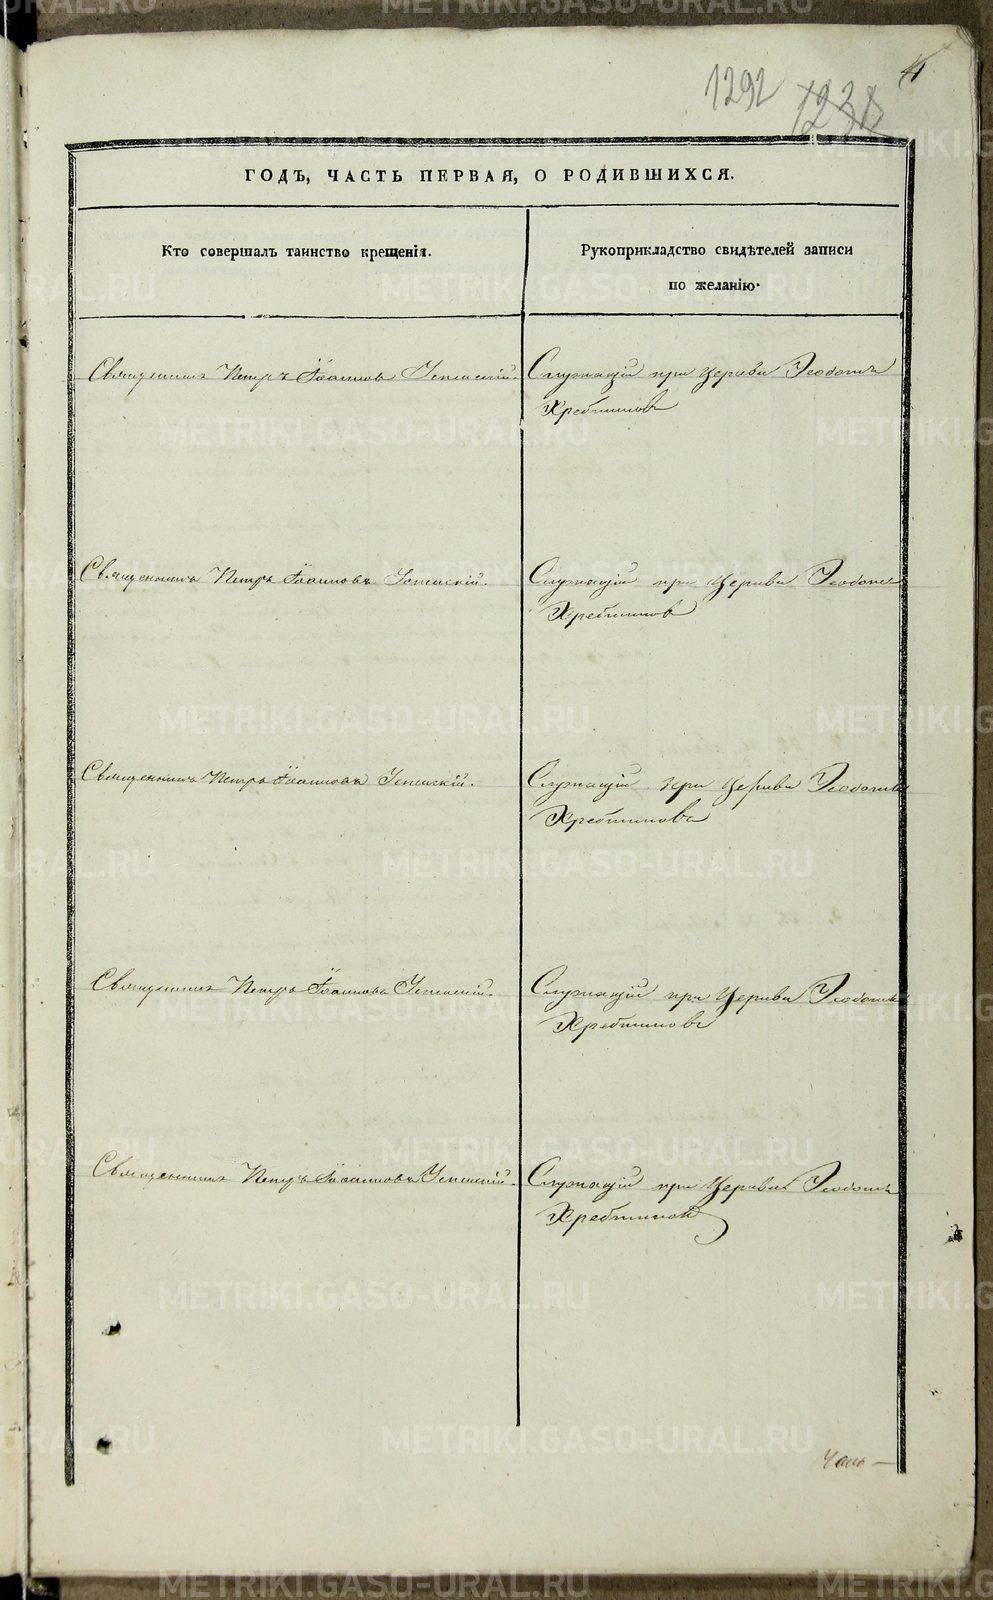 1292 1238
ГОДЪ, ЧАСТЬ ПЕРВАЯ, О РОДИВШИХСЯ.
Кто совершалъ таинство крещенія.
Рукоприкладство свидѣтелей записи
по желанію.
Священникъ Петръ Іоанновъ Успенскій.
Служащій при Церкви Ѳеодотъ
Хребтиковъ
Священникъ Петръ Іоанновъ Успенскій.
Служащій при Церкви Ѳеодотъ
Хребтиковъ
Священникъ Петръ Іоанновъ Успенскій.
Служащій при Церкви Ѳеодотъ
Хребтиковъ
Священникъ Петръ Іоанновъ Успенскій.
Служащій при Церкви Ѳеодотъ
Хребтиковъ
Священникъ Петръ Іоанновъ Успенскій.
Служащій при Церкви Ѳеодотъ
Хребтиковъ
METRIKI.GASO-URAL.RU